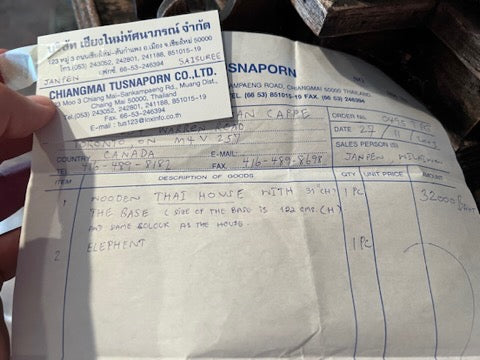 บริษัท เชียงใหม่ทัศนาภรณ์ จำกัด
123 หมู่ 3 ถนนเชียงใหม่-สันกำแพง อ.เมือง จ.เชียงใหม่ 50000
โทร.(053) 243052, 242801, 241188, 851015-19
แฟกซ์. 66-53-246394
JANPEN SAISUREE
CHIANGMAI TUSNAPORN CO.,LTD.
123 Moo 3 Chiang Mai-Sankampaeng Rd., Muang Dist.,
Chiang Mai 50000, Thailand
Tel.(053) 243052, 242801, 241188, 851015-19
Fax. 66-53-246394
E-mail : tus123@loxinfo.co.th
TUSNAPORN
KAMPAENG ROAD, CHIANGMAI 50000 THAILAND
TEL. (66 53) 851015-19 FAX. (66 53) 246394
NO.
CAPPE
ORDER NO.
WARREN ROAD
DATE 27 / 11 /
TORONTO, ON M4V 2S
SALES PERSON (S)
COUNTRY CANADA E-MAIL
JANPEN,
TEL 416-489-8182 FAX 416-489-8698
ITEM DESCRIPTION OF GOODS QTY UNIT PRICE AMOUNT
1 WOODEN THAI HOUSE WITH 31 (H) 1 PC 32000
THE BASE (SIZE OF THE BASE IS 122 cms. (H)
AND SAME COLOCK AS THE HOUSE.
2 ELEPHENT 1 PC